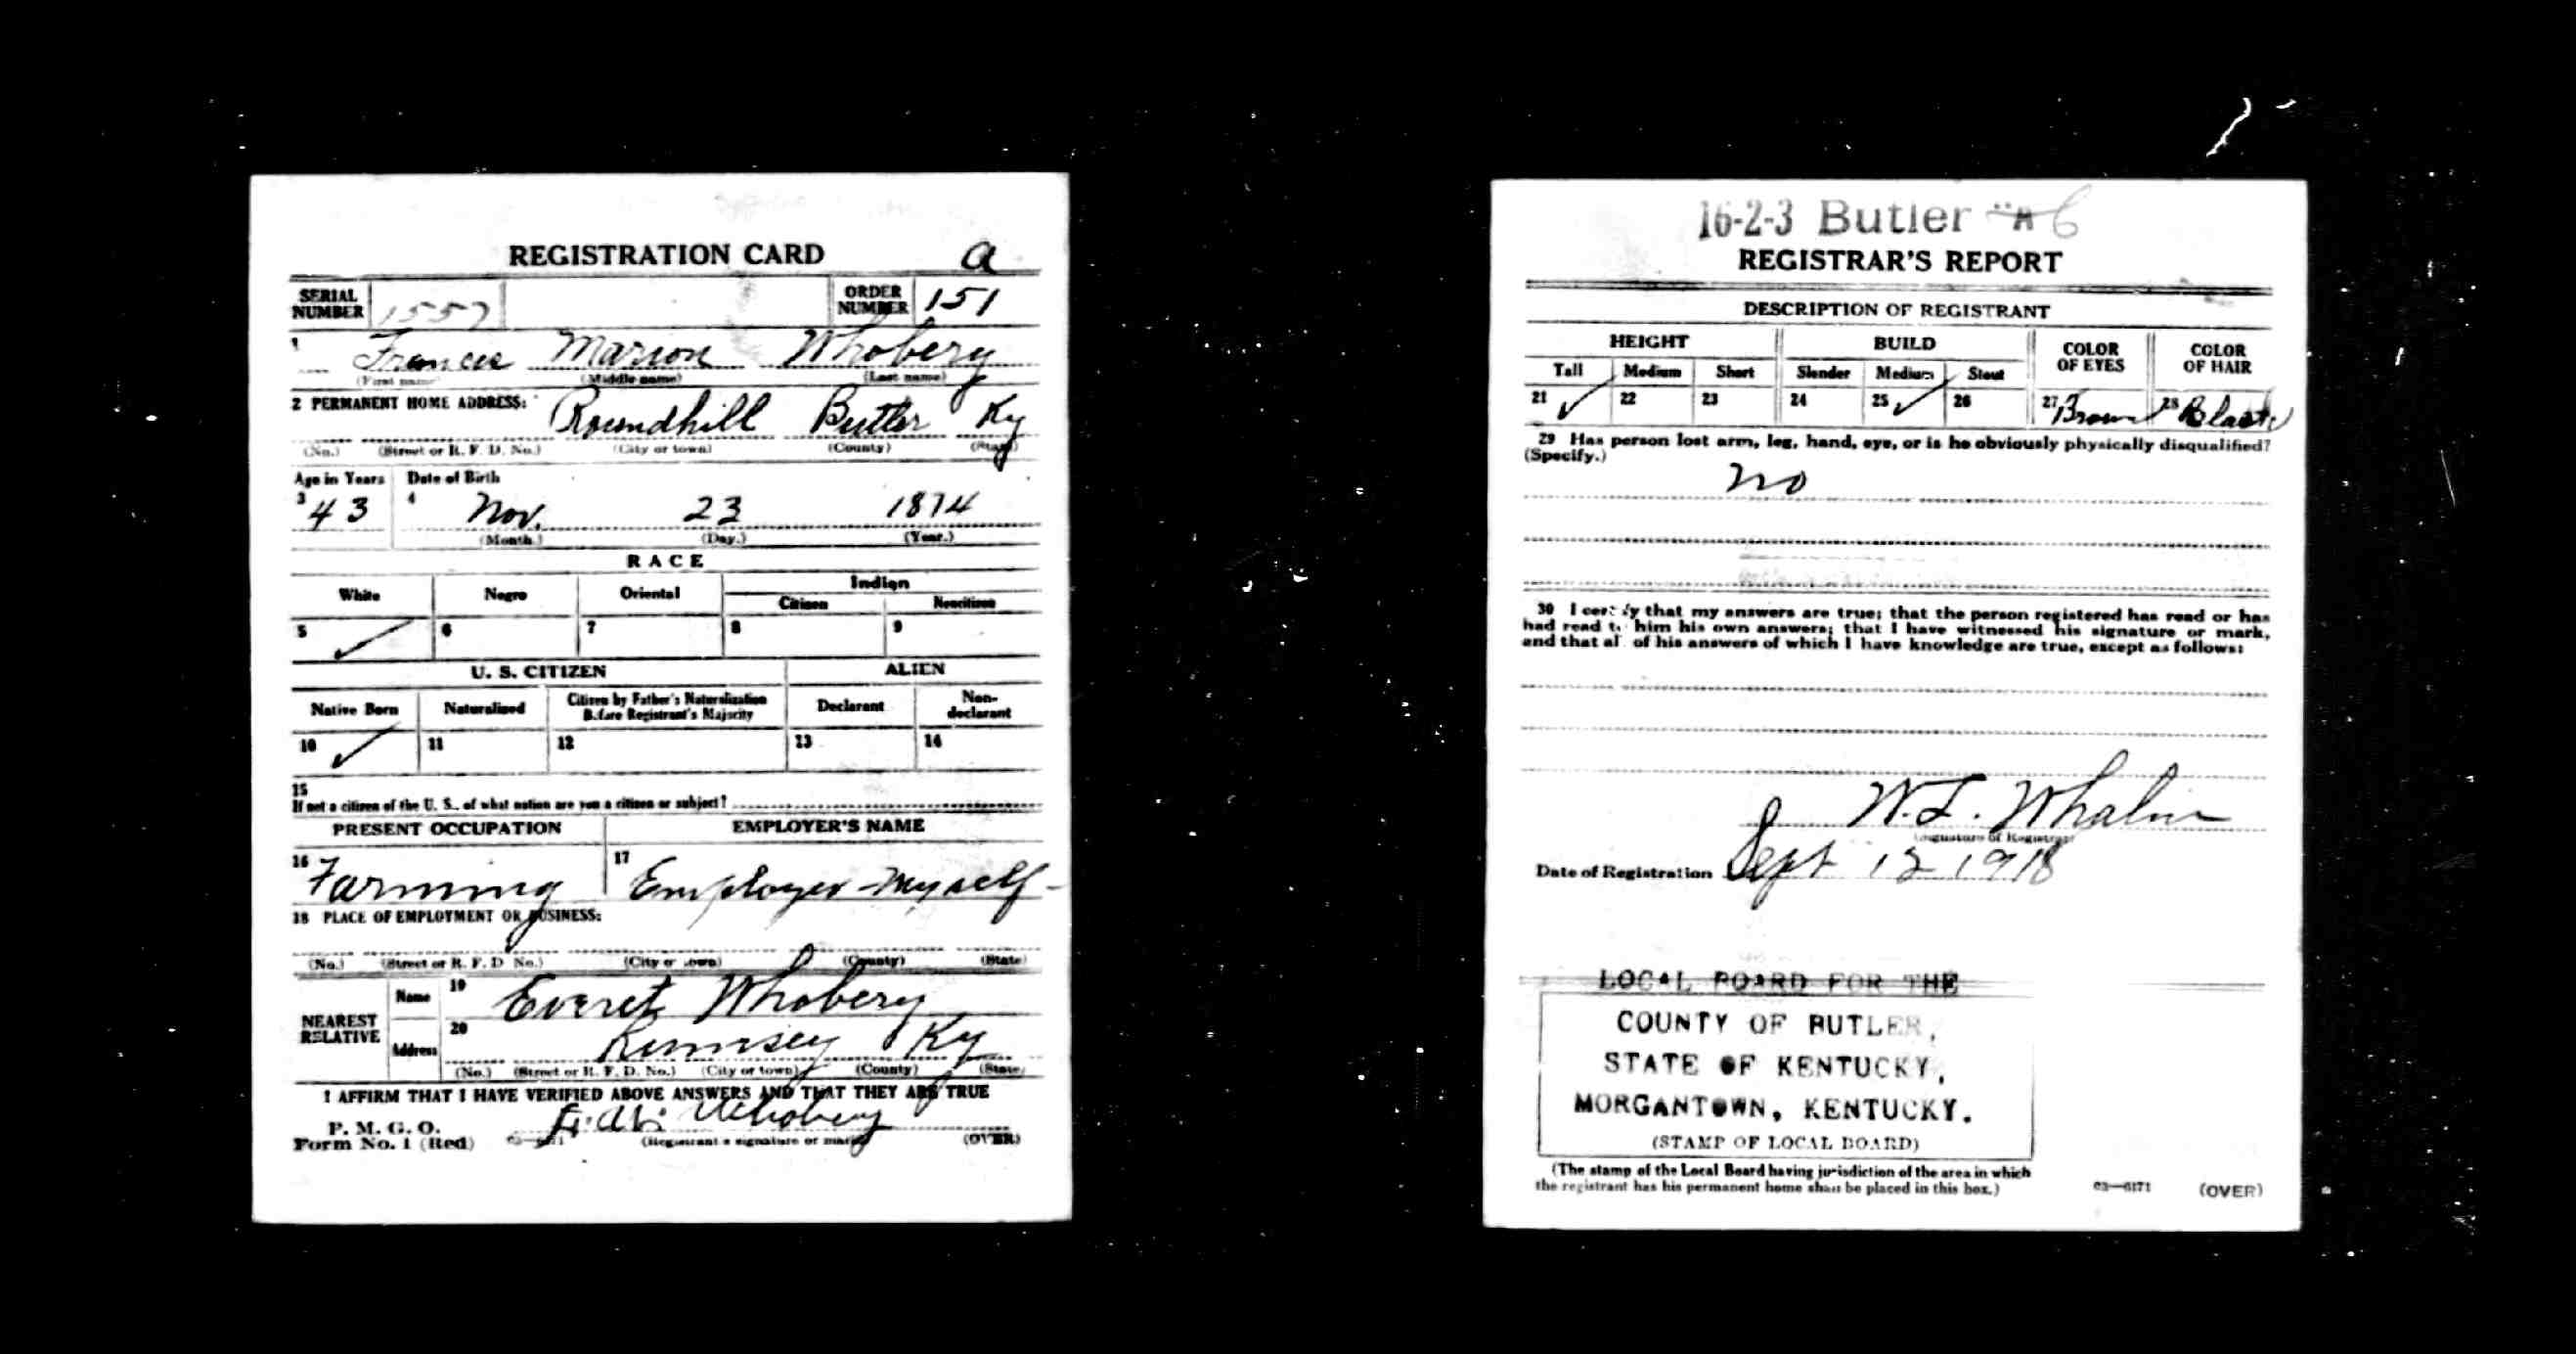 REGISTRATION CARD a
SERIAL NUMBER 1557 ORDER NUMBER 151
1 Francis Marion Whobery
(First name) (Middle name) (Last name)
2 PERMANENT HOME ADDRESS: Roundhill Butler Ky
(No.) (Street or R. F. D. No.) (City or town) (County) (State)
Age in Years Date of Birth
3 43 4 Nov. 23 1874
(Month.) (Day.) (Year.)
RACE
White Negro Oriental Indian
Citizen Noncitizen
5 6 7 8 9
U. S. CITIZEN ALIEN
Native Born Naturalized Citizen by Father's Naturalization Before Registrant's Majority Declarant Non-declarant
10 11 12 13 14
15
If not a citizen of the U. S., of what nation are you a citizen or subject?
PRESENT OCCUPATION EMPLOYER'S NAME
16 Farming 17 Employer-Myself-
18 PLACE OF EMPLOYMENT OR BUSINESS:
(No.) (Street or R. F. D. No.) (City or town) (County) (State)
NEAREST RELATIVE Name 19 Everet Whobery
Address 20 Rumsey Ky
(No.) (Street or R. F. D. No.) (City or town) (County) (State)
I AFFIRM THAT I HAVE VERIFIED ABOVE ANSWERS AND THAT THEY ARE TRUE
P. M. G. O.
Form No. 1 (Red) 03—6171 F. M. Whobery
(Registrant's signature or mark) (OVER)
16-2-3 Butler "A 6
REGISTRAR'S REPORT
DESCRIPTION OF REGISTRANT
HEIGHT BUILD COLOR OF EYES COLOR OF HAIR
Tall Medium Short Slender Medium Stout
21 22 23 24 25 26 27 Brown 28 Black
29 Has person lost arm, leg, hand, eye, or is he obviously physically disqualified?
(Specify.)
no
30 I certify that my answers are true; that the person registered has read or has
had read to him his own answers; that I have witnessed his signature or mark,
and that all of his answers of which I have knowledge are true, except as follows:
W. L. Whalin
(Signature of Registrar)
Date of Registration Sept 12 1918
LOCAL BOARD FOR THE
COUNTY OF BUTLER,
STATE OF KENTUCKY,
MORGANTOWN, KENTUCKY.
(STAMP OF LOCAL BOARD)
(The stamp of the Local Board having jurisdiction of the area in which
the registrant has his permanent home shall be placed in this box.)
03—6171 (OVER)